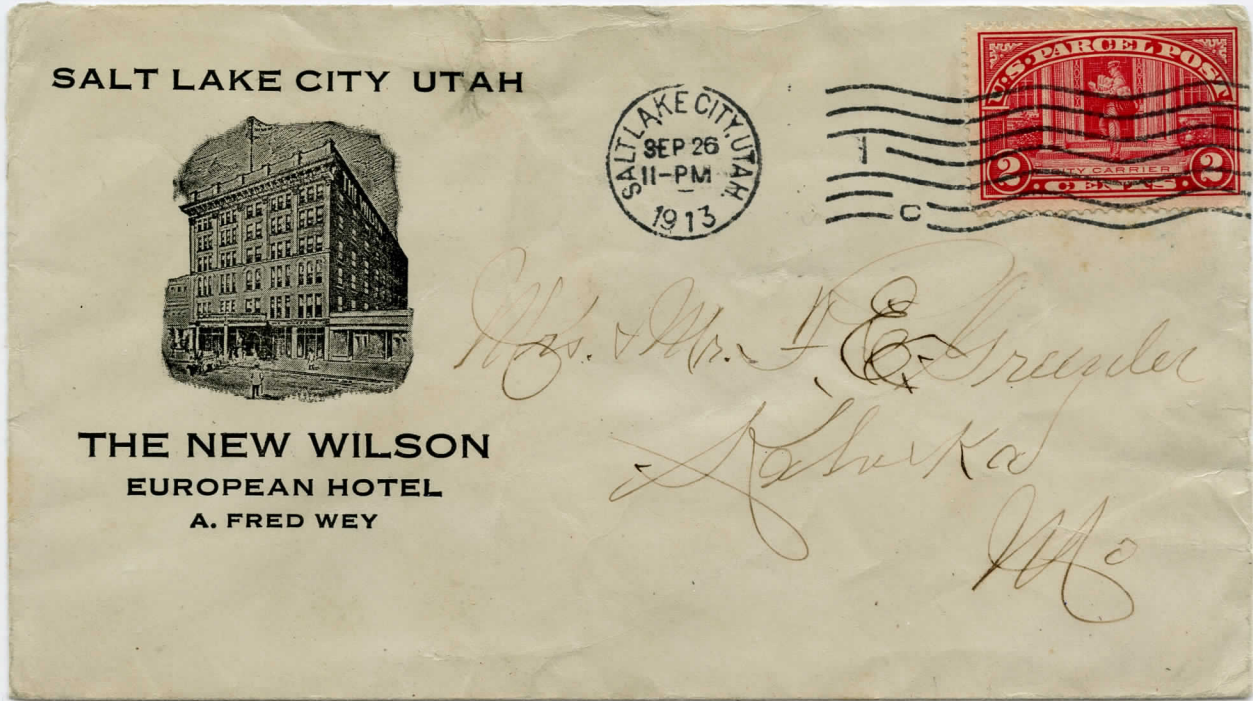 SALT LAKE CITY UTAH
THE NEW WILSON
EUROPEAN HOTEL
A. FRED WEY
SALT LAKE CITY, UTAH.
SEP 26
11-PM
1913
1
C
U.S. PARCEL POST
2
CITY CARRIER
2
CENTS
Mrs. & Mr. F. E. Gruyder
Kahoka
Mo